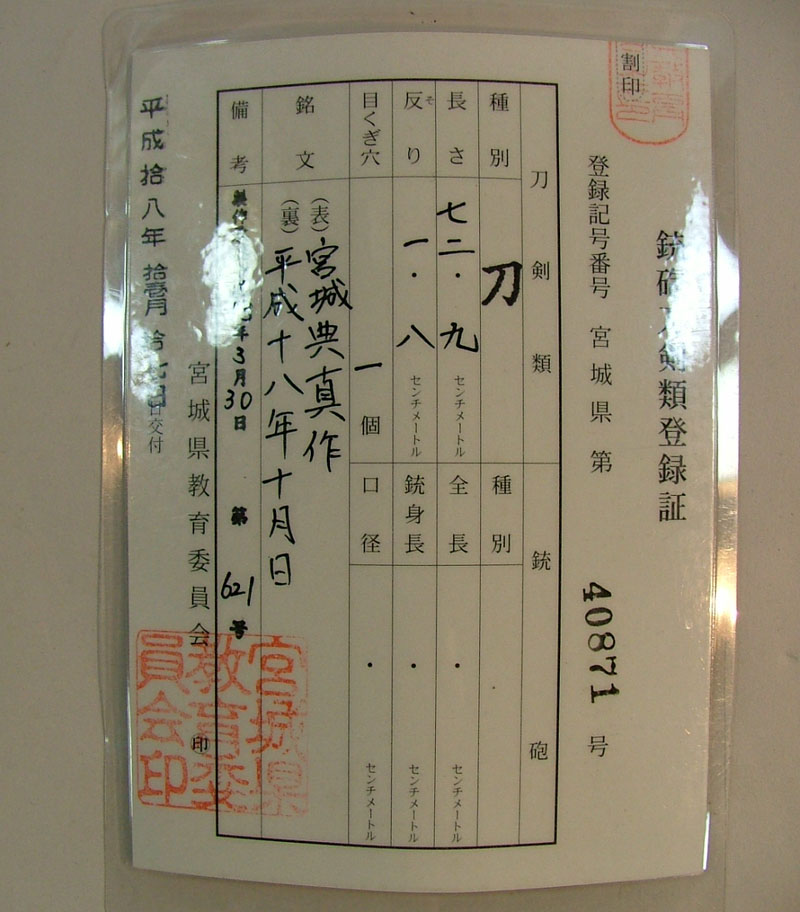 割印
銃砲刀剣類登録証
登録記号番号 宮城県 第 40871 号
刀剣類
銃砲
種別 刀
種別
長さ 七二・九 センチメートル
全長 ・ センチメートル
反り 一・八 センチメートル
そ
銃身長 ・ センチメートル
目くぎ穴 一個
口径 ・ センチメートル
銘文 (表) 宮城典真作
(裏) 平成十八年十月日
備考 年3月30日 第621号
宮城県教育委員会 印
宮城県
教育委
員会印
平成拾八年拾壹月拾七日交付